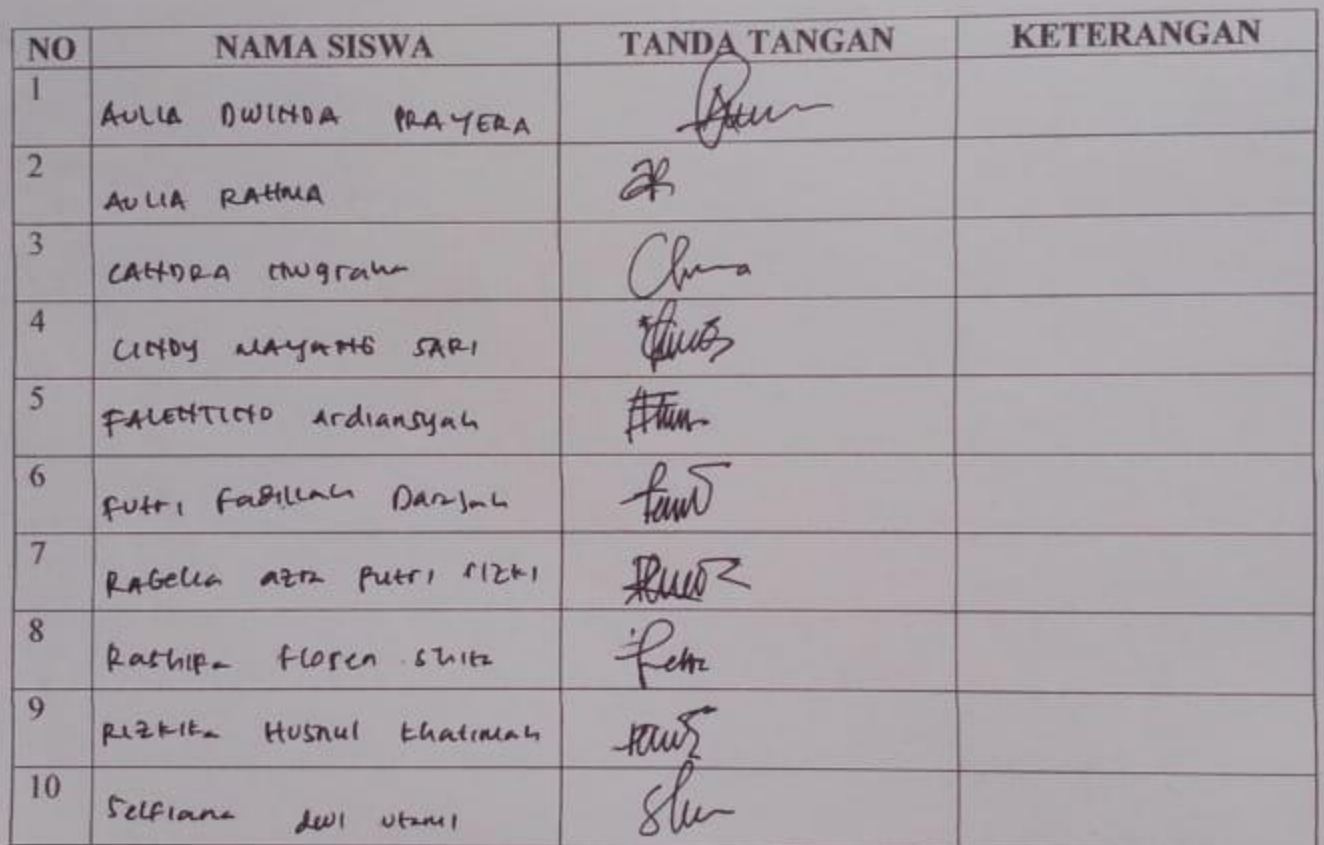 NO NAMA SISWA TANDA TANGAN KETERANGAN
1 AULIA DWINDA PRAYERA
2 AULIA RAHMA
3 CANDRA nugraha
4 CINDY MAYANG SARI
5 FALENTINO Ardiansyah
6 Putri Fadillah Darajah
7 RAGella azra Putri rizki
8 Rashipa floren shita
9 RIZKIKa Husnul khatimah
10 Selfiana dewi utami